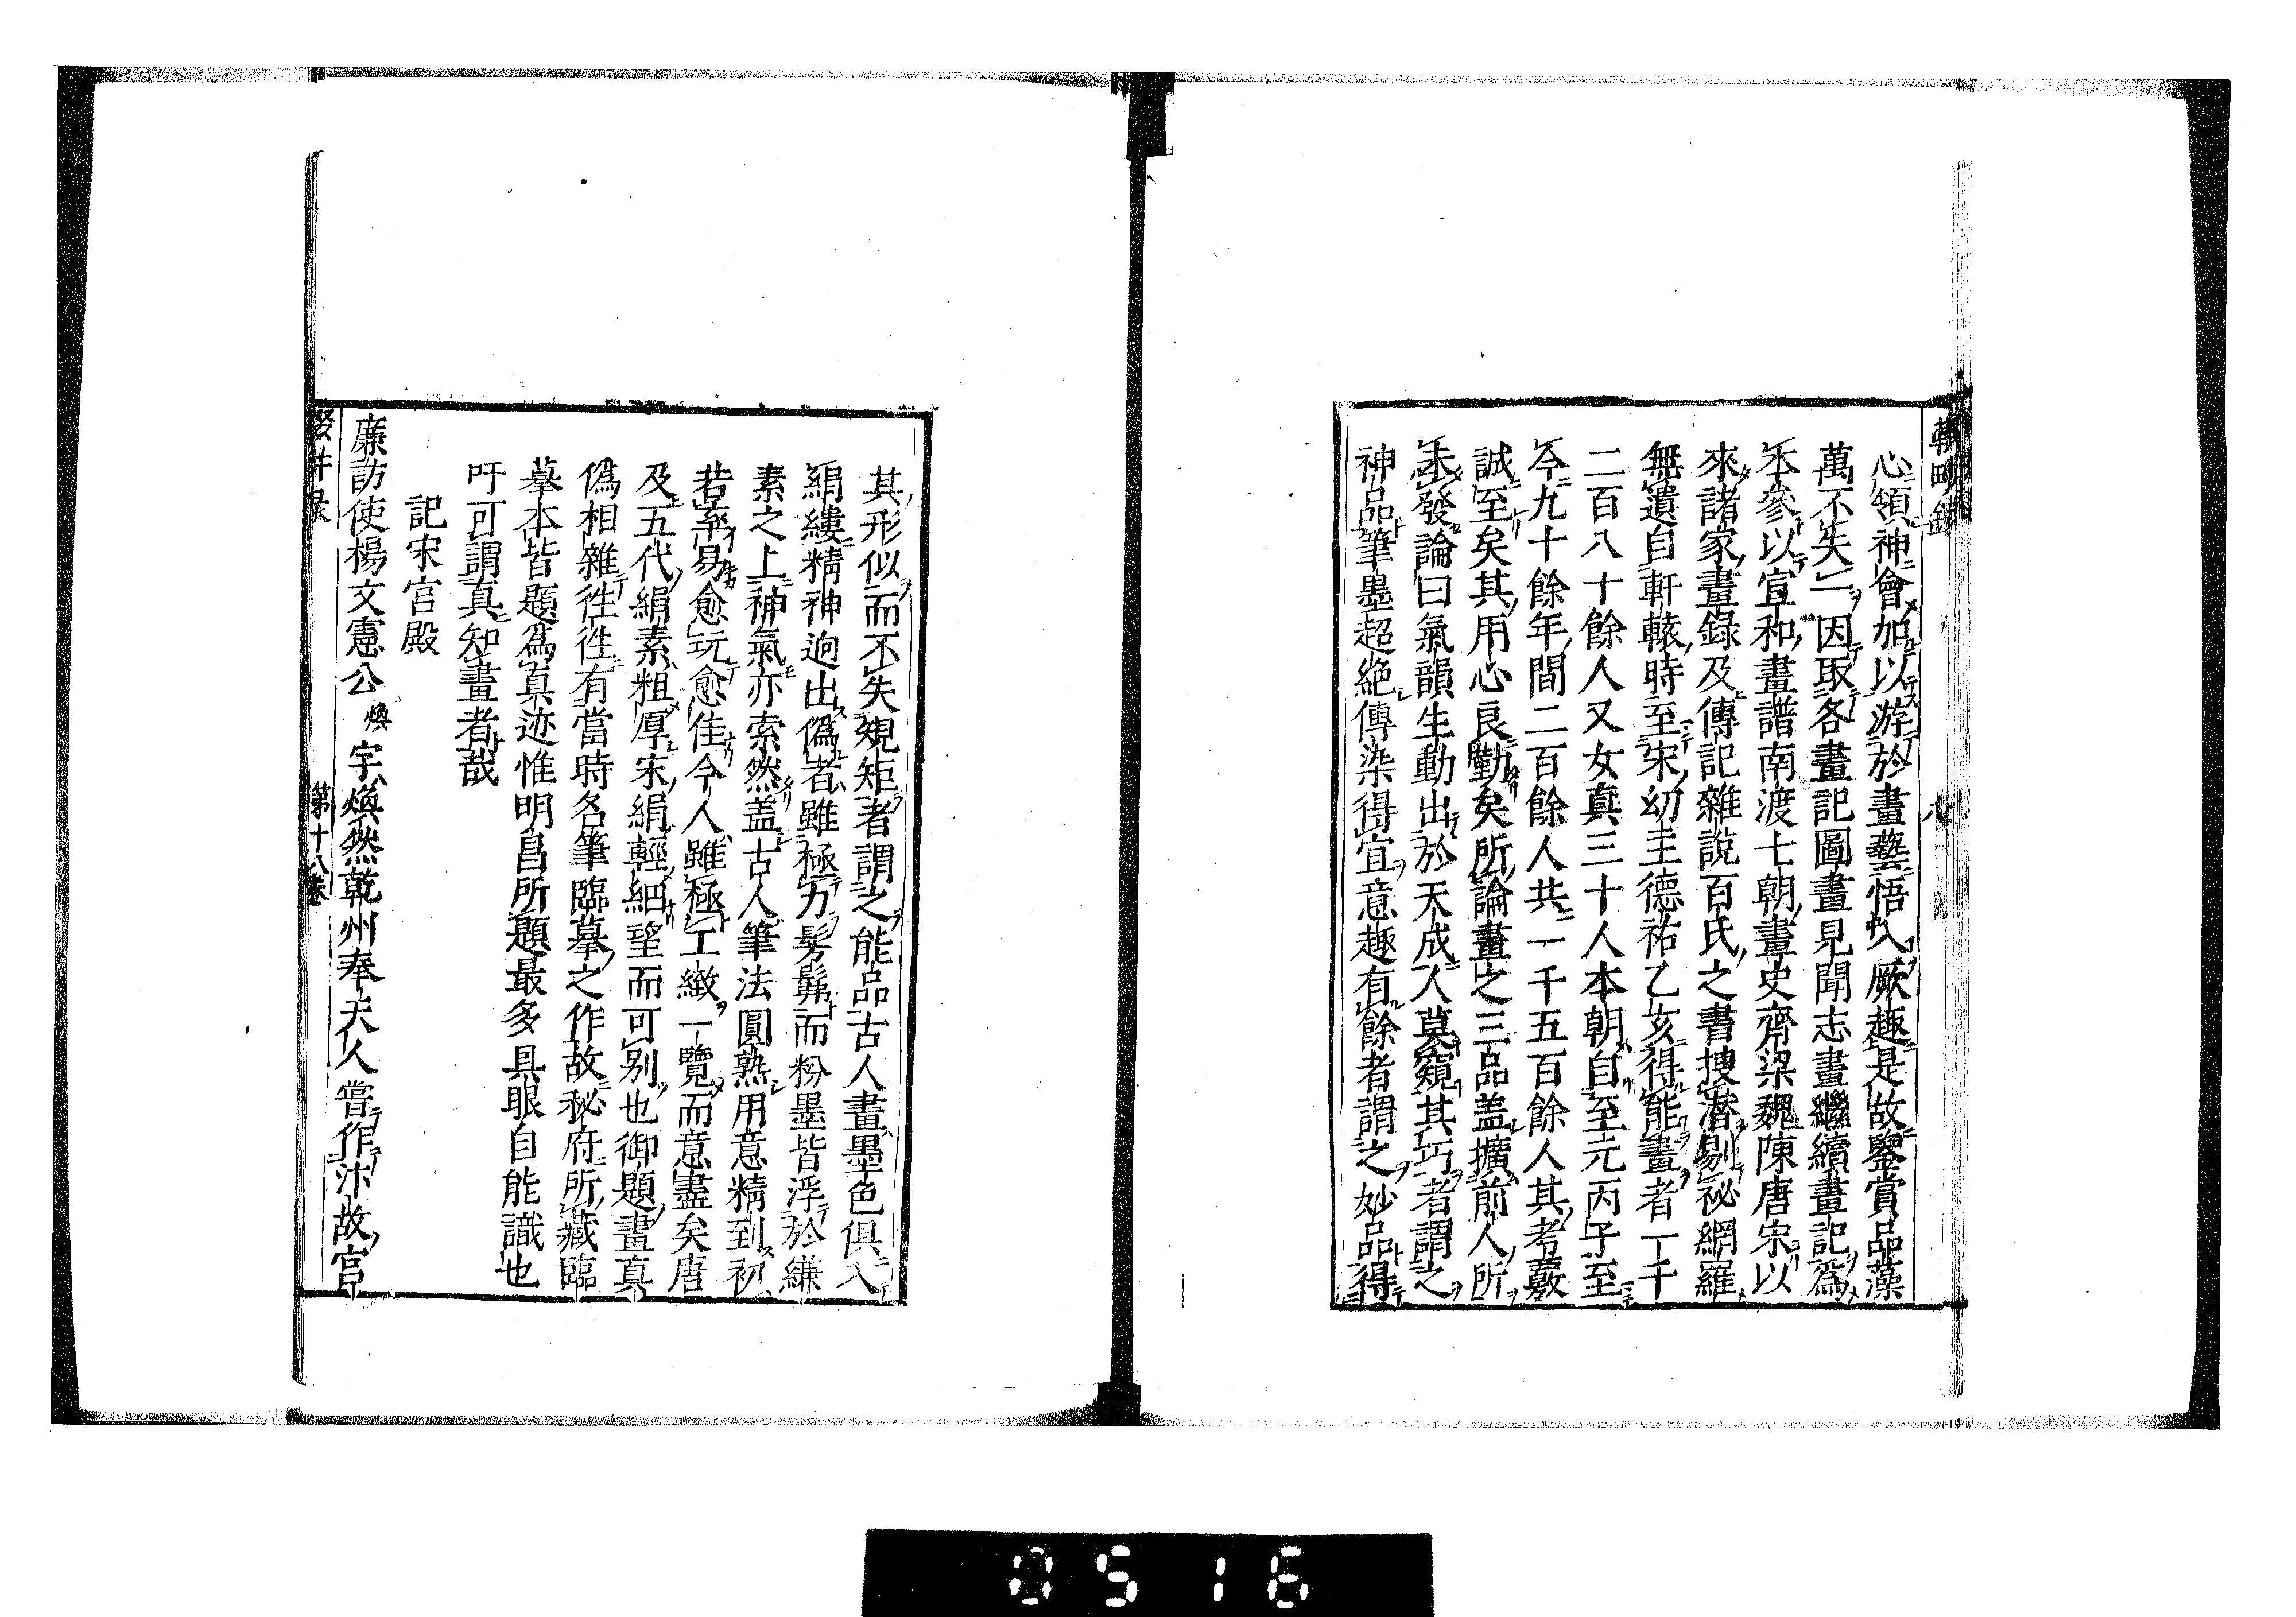 心領神會加以游於畫藝悟入厥趣是故鑒賞品藻
萬不失一因取各畫記圖畫見聞志畫繼續畫記爲
本參以宣和畫譜南渡七朝畫史齊梁魏陳唐宋以
來諸家畫錄及傳記雜說百氏之書搜潜剔祕網羅
無遺自軒轅時至宋幼主德祐乙亥得能畫者一千
二百八十餘人又女真三十人本朝自至元丙子至
今九十餘年間二百餘人共一千五百餘人其考覈
誠至矣其用心良勤矣所論畫之三品盖擴前人所
未發論曰氣韻生動出於天成人莫窺其巧者謂之
神品筆墨超絶傳染得宜意趣有餘者謂之妙品得
其形似而不失規矩者謂之能品古人畫墨色俱入
絹縷精神迥出僞者雖極力髣髴而粉墨皆浮於縑
素之上神氣亦索然盖古人筆法圓熟用意精到初
若率易愈玩愈佳今人雖極工緻一覽而意盡矣唐
及五代絹素粗厚宋絹輕細望而可别也御題畫真
僞相雜徃徃有當時名筆臨摹之作故秘府所藏臨
摹本皆題爲真迹惟明昌所題最多具眼自能識也
吁可謂真知畫者哉
記宋宮殿
廉訪使楊文憲公 煥 字煥然乾州奉天人嘗作汴故宮
第十八卷